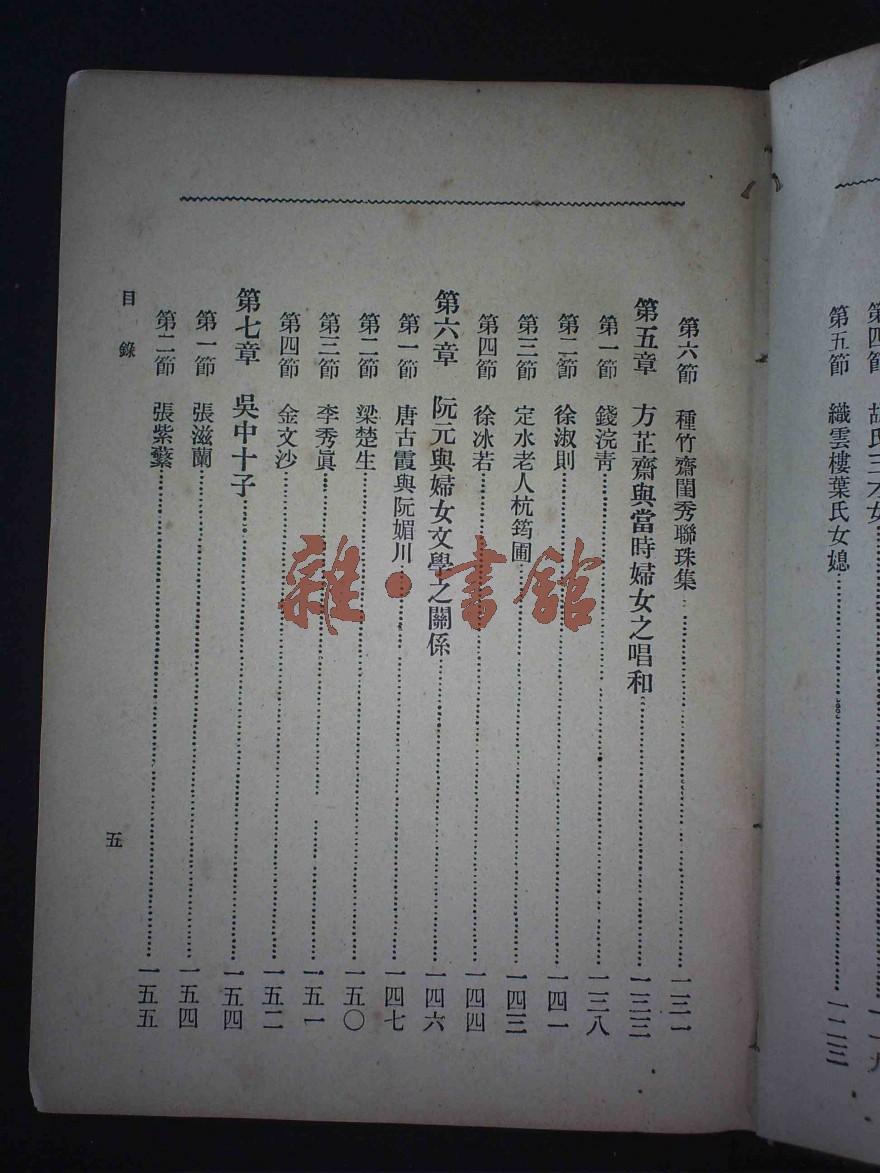 第五節　織雲樓葉氏女媳 一二三
第六節　種竹齋閨秀聯珠集 一三一
第五章　方芷齋與當時婦女之唱和 一三三
第一節　錢浣青 一三八
第二節　徐淑則 一四一
第三節　定水老人杭筠圃 一四三
第四節　徐冰若 一四四
第六章　阮元與婦女文學之關係 一四六
第一節　唐古霞與阮媚川 一四七
第二節　梁楚生 一五〇
第三節　李秀眞 一五一
第四節　金文沙 一五二
第七章　吳中十子 一五四
第一節　張滋蘭 一五四
第二節　張紫蘩 一五五
目錄
五
雜·書館